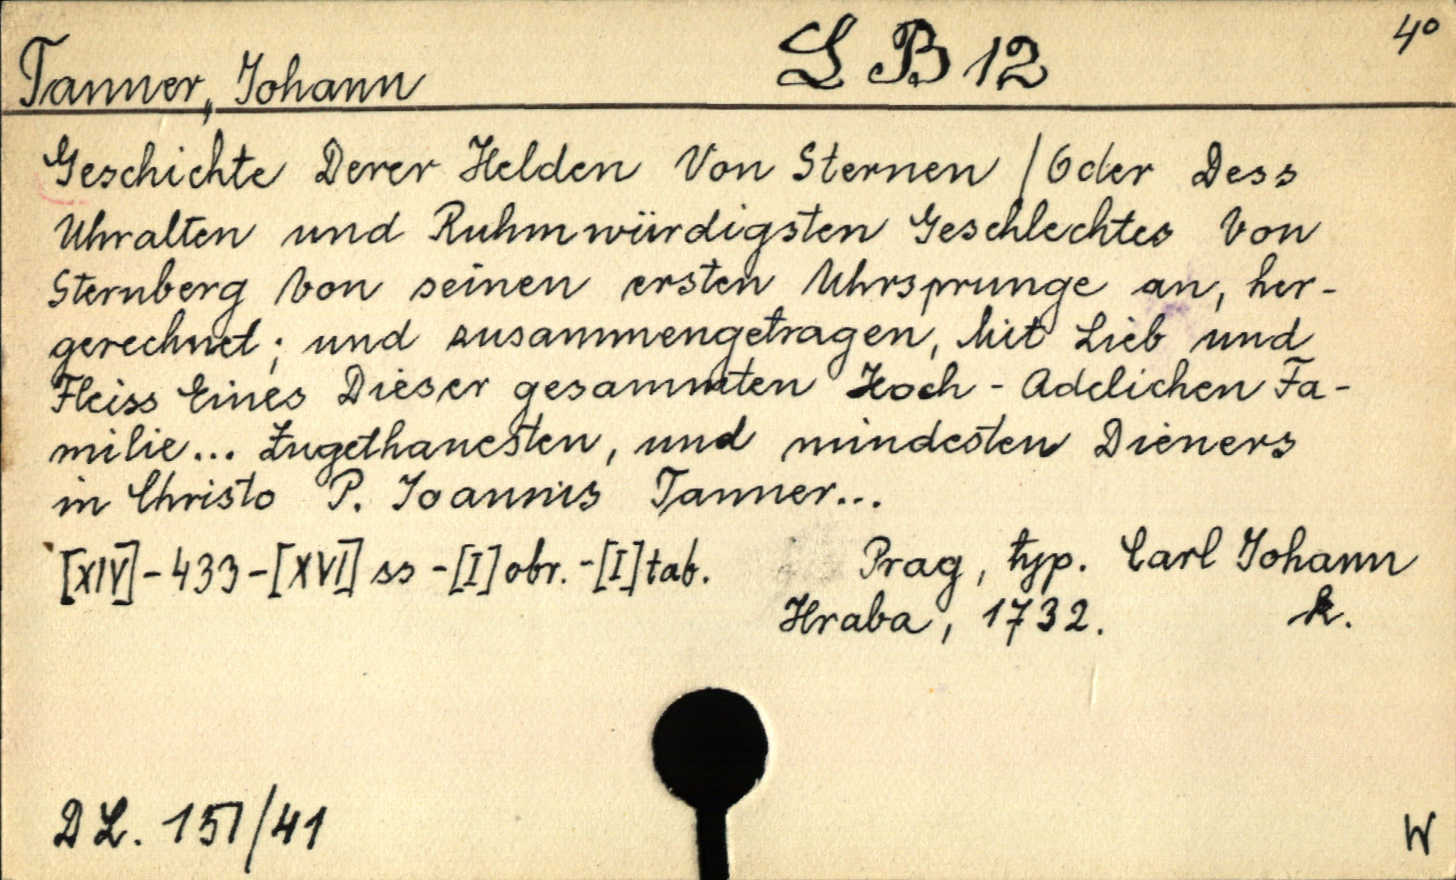 L B 12
4°
Tanner, Johann
Geschichte Derer Helden Von Sternen / Oder Dess
Uhralten und Ruhmwürdigsten Geschlechtes Von
Sternberg Von seinen ersten Uhrsprunge an, her-
gerechnet; und zusammengetragen, Mit Lieb und
Fleiss Eines Dieser gesammten Hoch-Adelichen Fa-
milie... Zugethanesten, und mindesten Dieners
in Christo P. Joannis Tanner...
[XIV]-433-[XVI] ss -[I] obr. -[I] tab. Prag, typ. Carl Johann
Hraba, 1732. k.
DL. 151/41
W